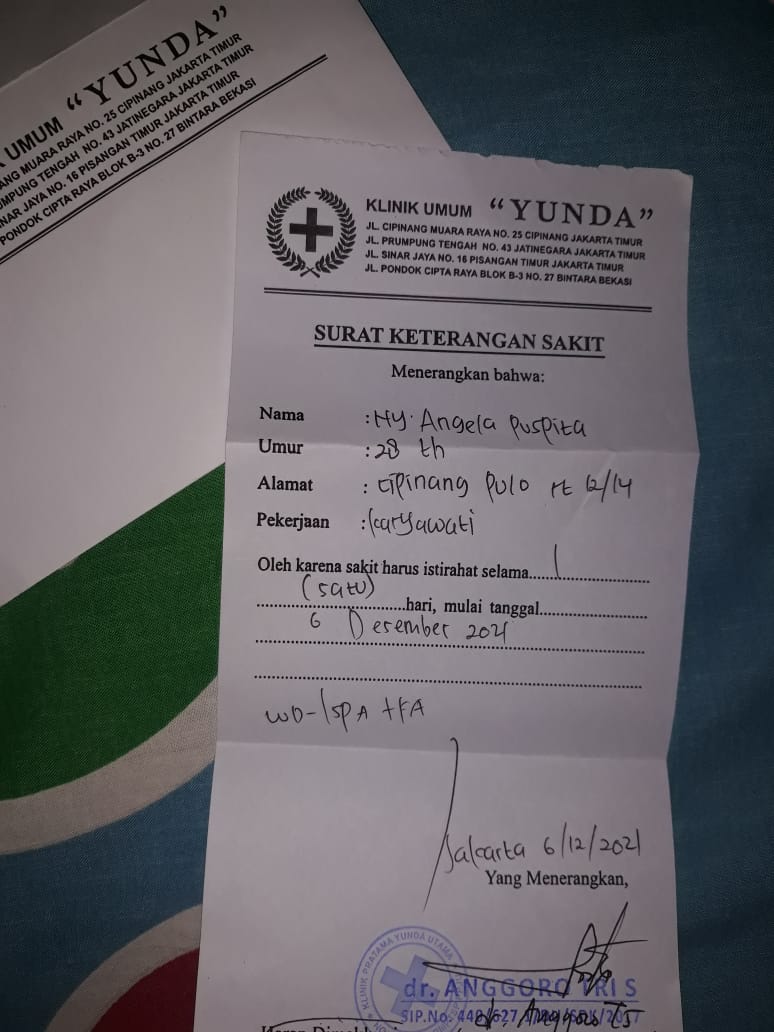 UMUM “YUNDA”
ANG MUARA RAYA NO. 25 CIPINANG JAKARTA TIMUR
MPUNG TENGAH NO. 43 JATINEGARA JAKARTA TIMUR
NAR JAYA NO. 16 PISANGAN TIMUR JAKARTA TIMUR
PONDOK CIPTA RAYA BLOK B-3 NO. 27 BINTARA BEKASI
KLINIK UMUM “YUNDA”
JL. CIPINANG MUARA RAYA NO. 25 CIPINANG JAKARTA TIMUR
JL. PRUMPUNG TENGAH NO. 43 JATINEGARA JAKARTA TIMUR
JL. SINAR JAYA NO. 16 PISANGAN TIMUR JAKARTA TIMUR
JL. PONDOK CIPTA RAYA BLOK B-3 NO. 27 BINTARA BEKASI
SURAT KETERANGAN SAKIT
Menerangkan bahwa:
Nama : Ny. Angela Puspita
Umur : 28 th
Alamat : Cipinang Pulo rt 12/14
Pekerjaan : karyawati
Oleh karena sakit harus istirahat selama 1
(satu) hari, mulai tanggal
6 Desember 2021
WD-ISPA + FA
Jakarta 6/12/2021
Yang Menerangkan,
KLINIK PRATAMA YUNDA UTAMA
dr. ANGGORO TRI S
SIP.No.